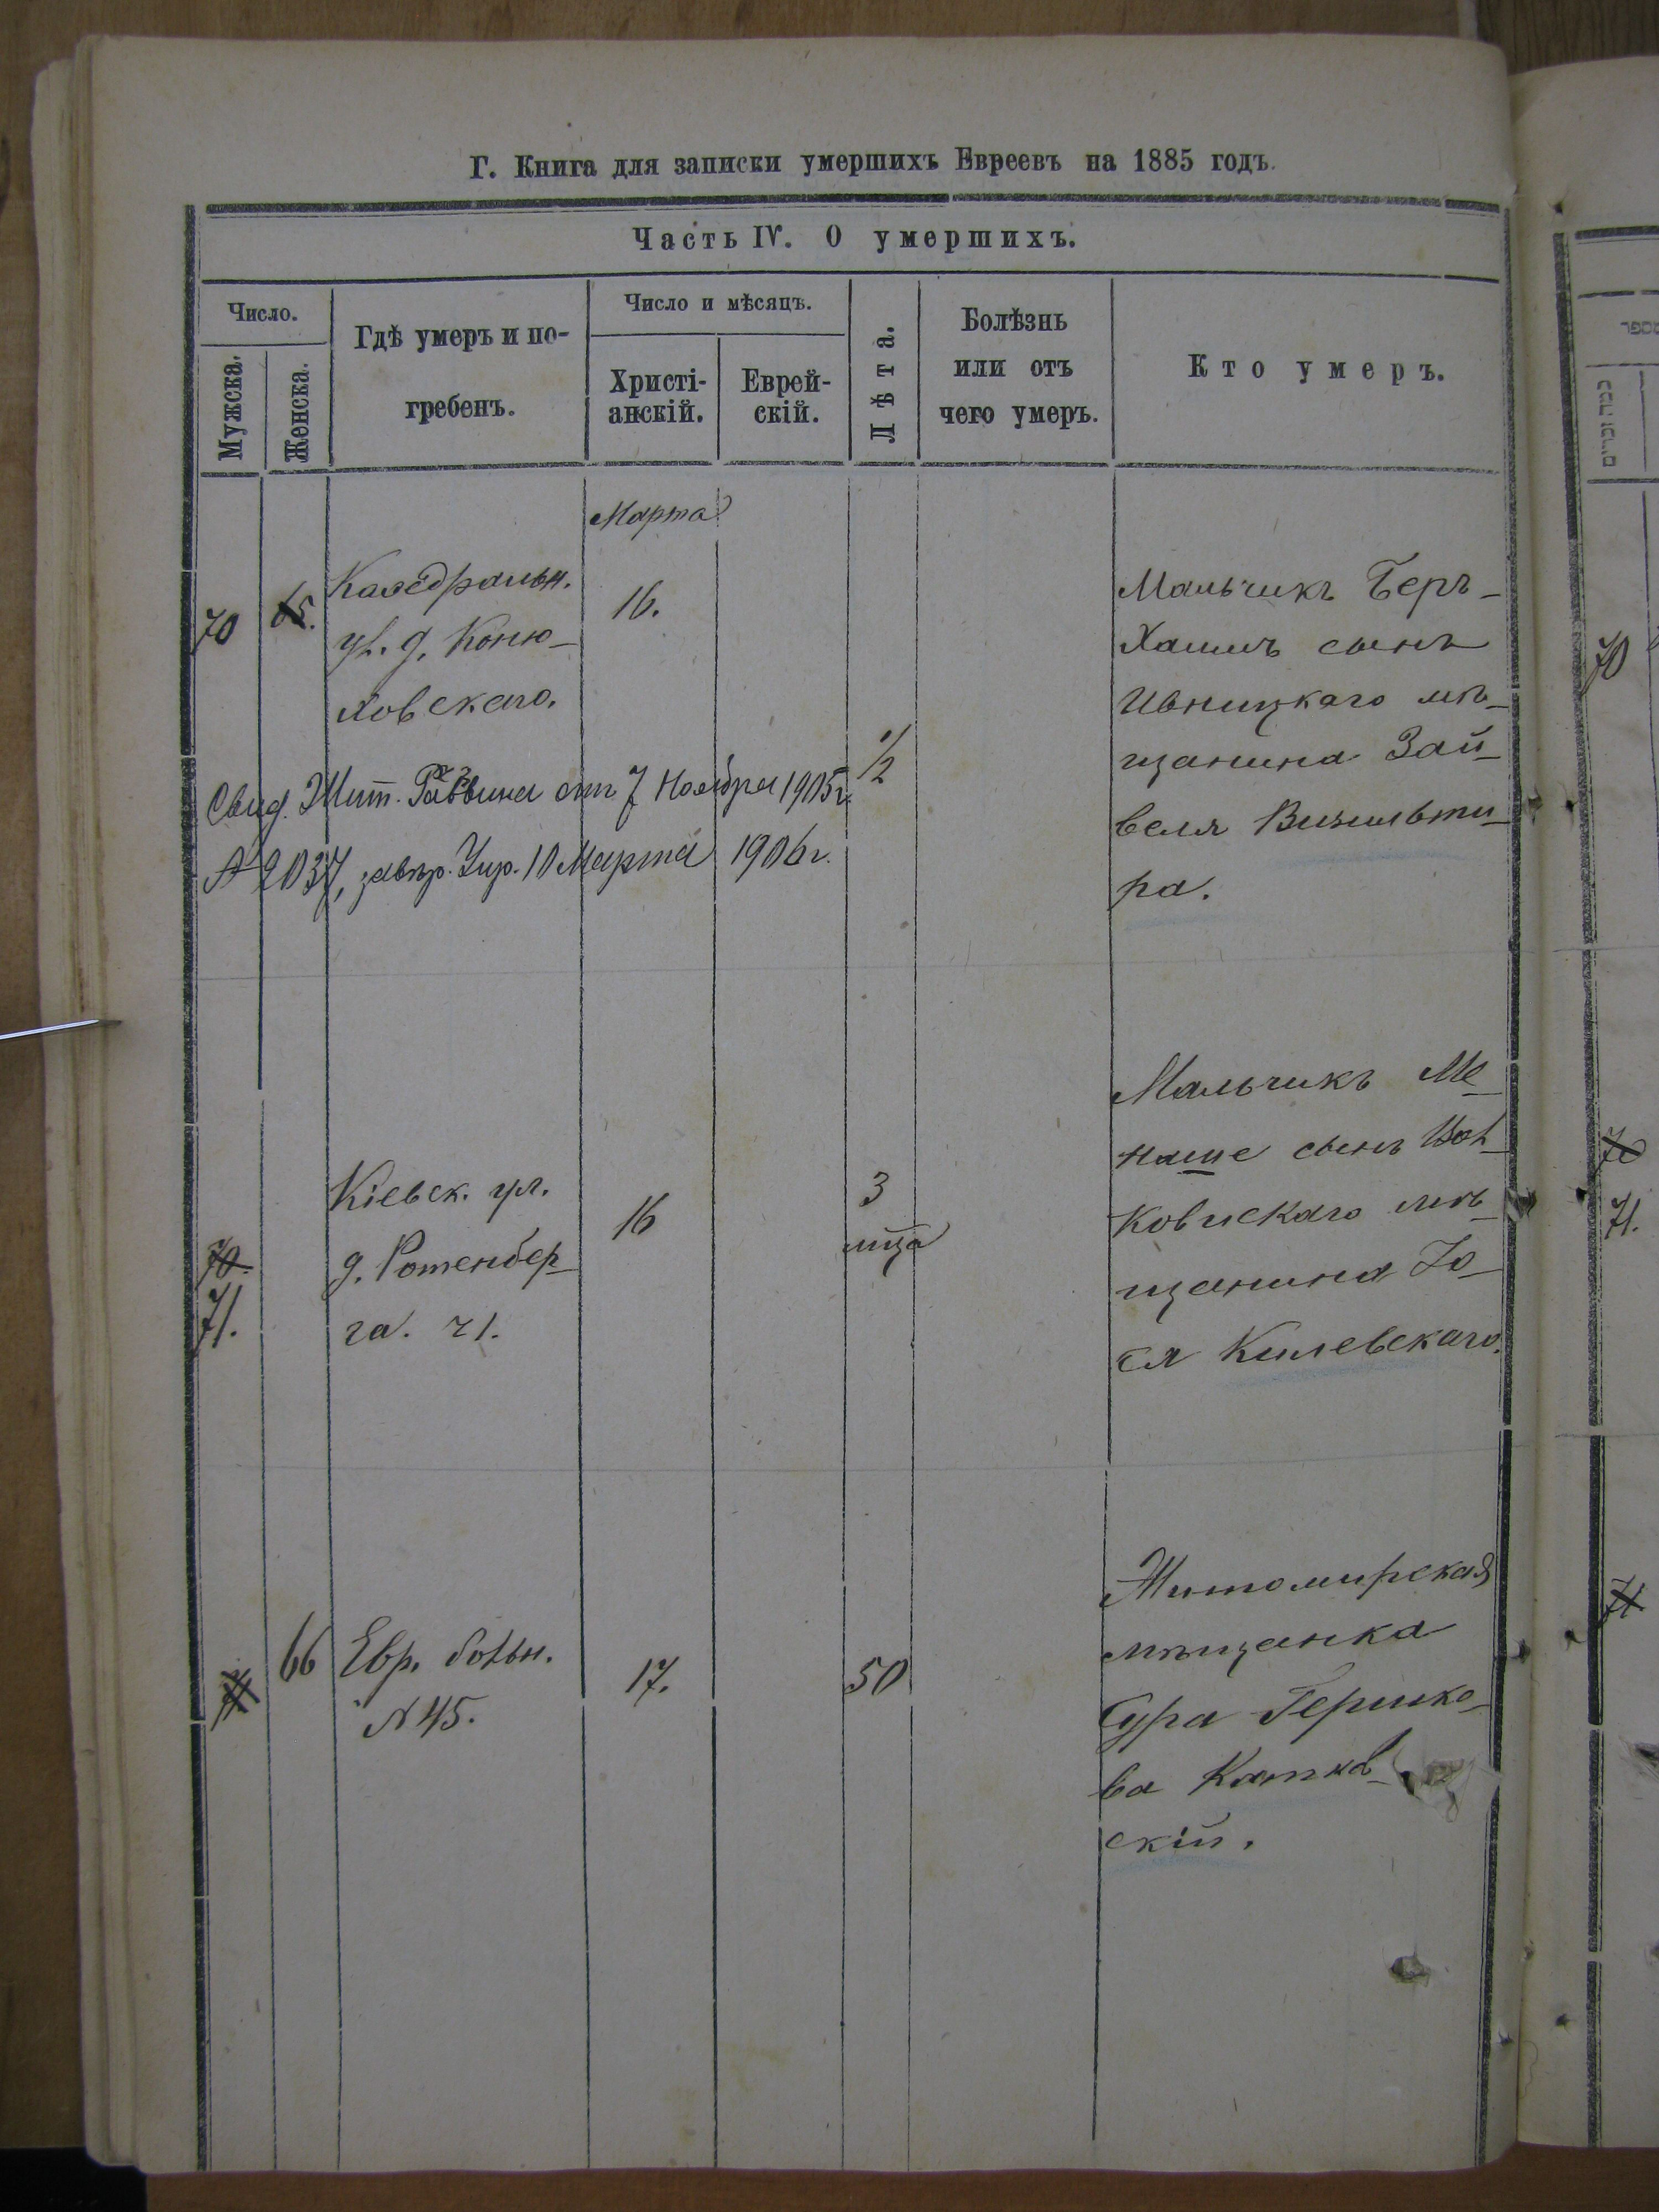 Г. Книга для записки умершихъ Евреевъ на 1885 годъ.
Часть IV. О умершихъ.
Число.
Мужска.
Женска.
Гдѣ умеръ и по-
гребенъ.
Число и мѣсяцъ.
Христі-
анскій.
Еврей-
скій.
Лѣта.
Болѣзнь
или отъ
чего умеръ.
Кто умеръ.
Марта
70
65.
Каѳедральн.
ул. д. Коню-
ховскаго.
16.
1/2
Мальчикъ Беръ-
Хаимъ сынъ
Ивницкаго мѣ-
щанина Зай-
веля Визильти-
ра.
Свид. Жит. Раввина отъ 7 Ноября 1905 г.
№ 2037, завѣр. Упр. 10 Марта 1906 г.
70.
71.
Кіевск. ул.
д. Ротенбер-
га. ч 1.
16
3
мца
Мальчикъ Ме-
наше сынъ Вол-
ковискаго мѣ-
щанина Іо-
ся Килевскаго.
71
66
Евр. больн.
№ 45.
17.
50
Житомирская
мѣщанка
Сура Гершко-
ва
скій.
70
70
71.
71